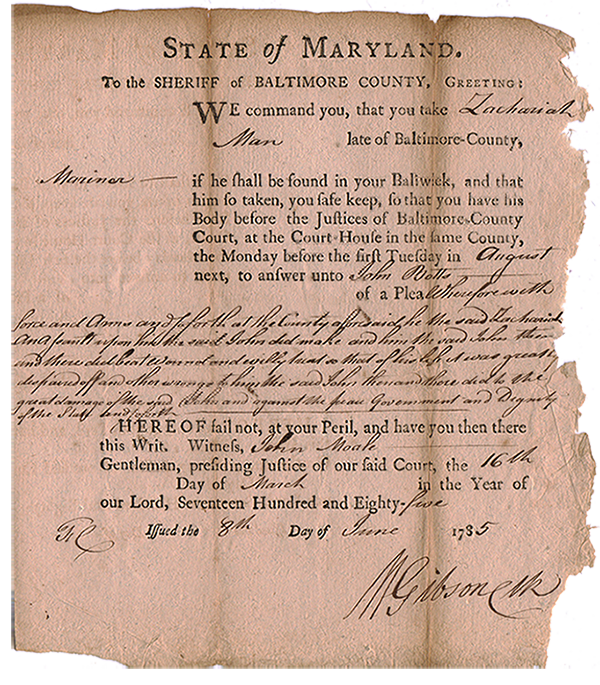 STATE of MARYLAND.
To the SHERIFF of BALTIMORE COUNTY, GREETING:
WE command you, that you take Zachariah
Man late of Baltimore-County,
Mariner — if he ſhall be found in your Baliwick, and that
him ſo taken, you ſafe keep, ſo that you have his
Body before the Juſtices of Baltimore-County
Court, at the Court-Houſe in the ſame County,
the Monday before the firſt Tueſday in August
next, to answer unto John Botts
of a Plea Wherefore with
force and Arms and ſo forth at the County aforesaid he the said Zachariah
an aſsault upon him the said John did make and him the said John then
and there did beat wound and evilly treat so that of his life it was greatly
despaired off and other wrongs to him the said John then and there did to the
great damage of the said John and against the peace Government and Dignity
of the State and ſo forth
HEREOF fail not, at your Peril, and have you then there
this Writ. Witneſs, John Moale
Gentleman, preſiding Juſtice of our ſaid Court, the 16th
Day of March in the Year of
our Lord, Seventeen Hundred and Eighty-five
Iſſued the 8th Day of June 1785
Wm Gibson Clk